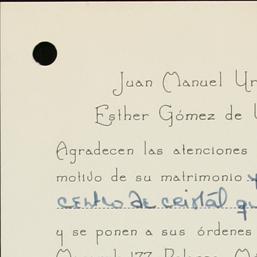 Juan Manuel Ur
Esther Gómez de U
Agradecen las atenciones
motivo de su matrimonio y
centro de cristal qu
y se ponen a sus órdenes
177